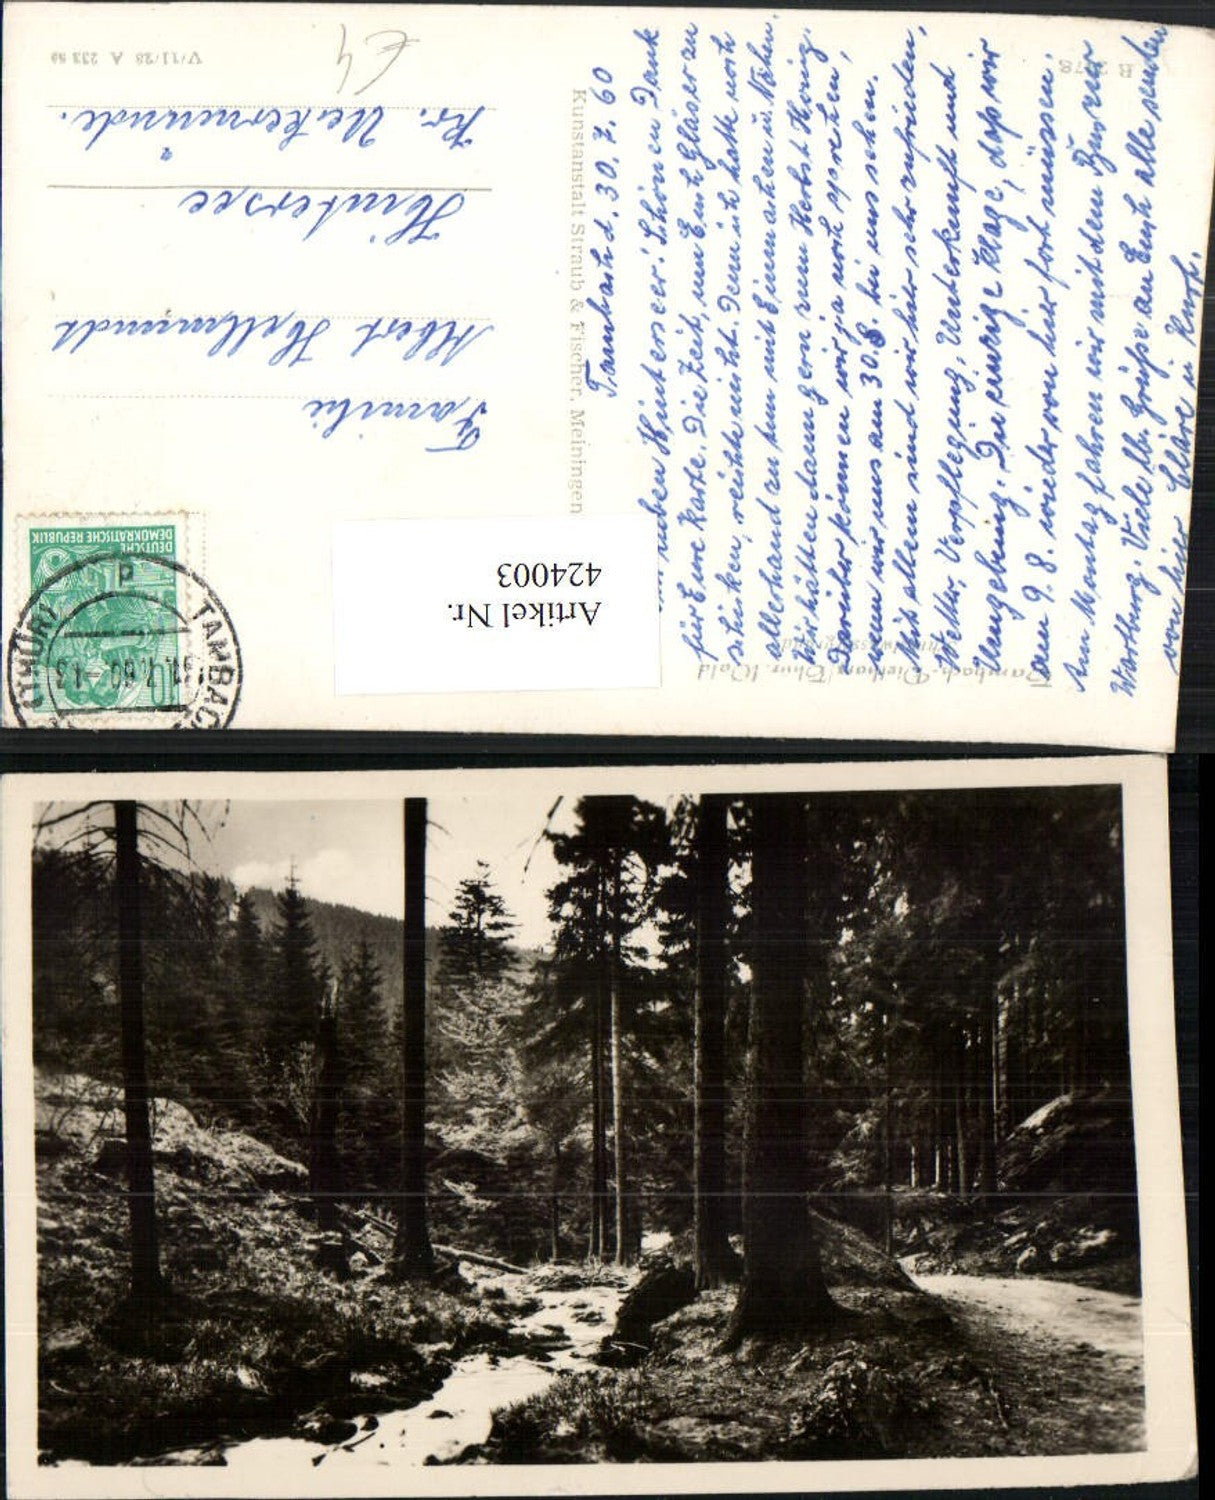 Tambach-Dietharz/Thür. Wald
Kunstanstalt Straub & Fischer, Meiningen
V/11/28 A 233 59
€4
Tambach d. 30. 7. 60
lieben Hinterseer! Schönen Dank
für Eure Karte. Die Zeit, um Euch Gläser zu
schicken, reichte nicht. Denn ich hatte noch
allerhand zu tun mit Einmachen u. Nähen.
Wir hätten dann gern zum Herbst Honig.
Darüber können wir ja noch sprechen,
wenn wir uns am 30.8. bei uns sehen.
Mit allem sind wir hier sehr zufrieden,
Wetter, Verpflegung, Unterkunft und
Umgebung. Die einzige Klage, daß wir
am 9. 8. wieder von hier fort müssen.
Am Montag fahren wir mit dem Bus zur
Wartburg. Viele lb. Grüße an Euch alle senden
von hier Cläre u. Knob.
Familie
Albert Hellmundt
Hintersee
Kr. Ueckermünde.
DEUTSCHE
DEMOKRATISCHE REPUBLIK
10
TAMBACH
(THÜR)
31.7.60-13
Artikel Nr.
424003